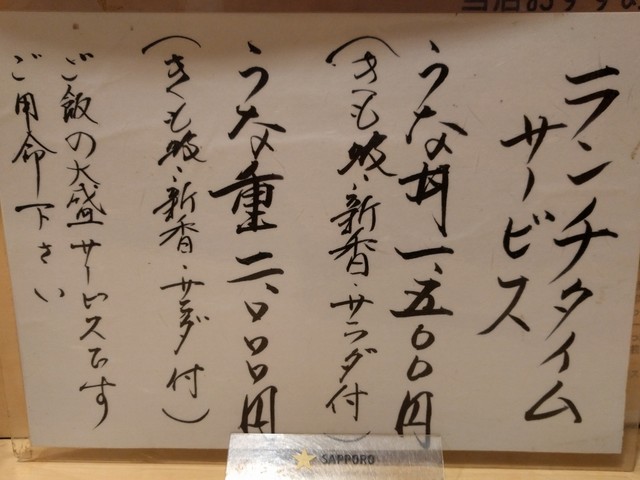 ランチタイム
サービス
うな丼 一、五〇〇円
(きも吸・新香・サラダ付)
うな重 二、〇〇〇円
(きも吸・新香・サラダ付)
ご飯の大盛サービスです
ご用命下さい
SAPPORO